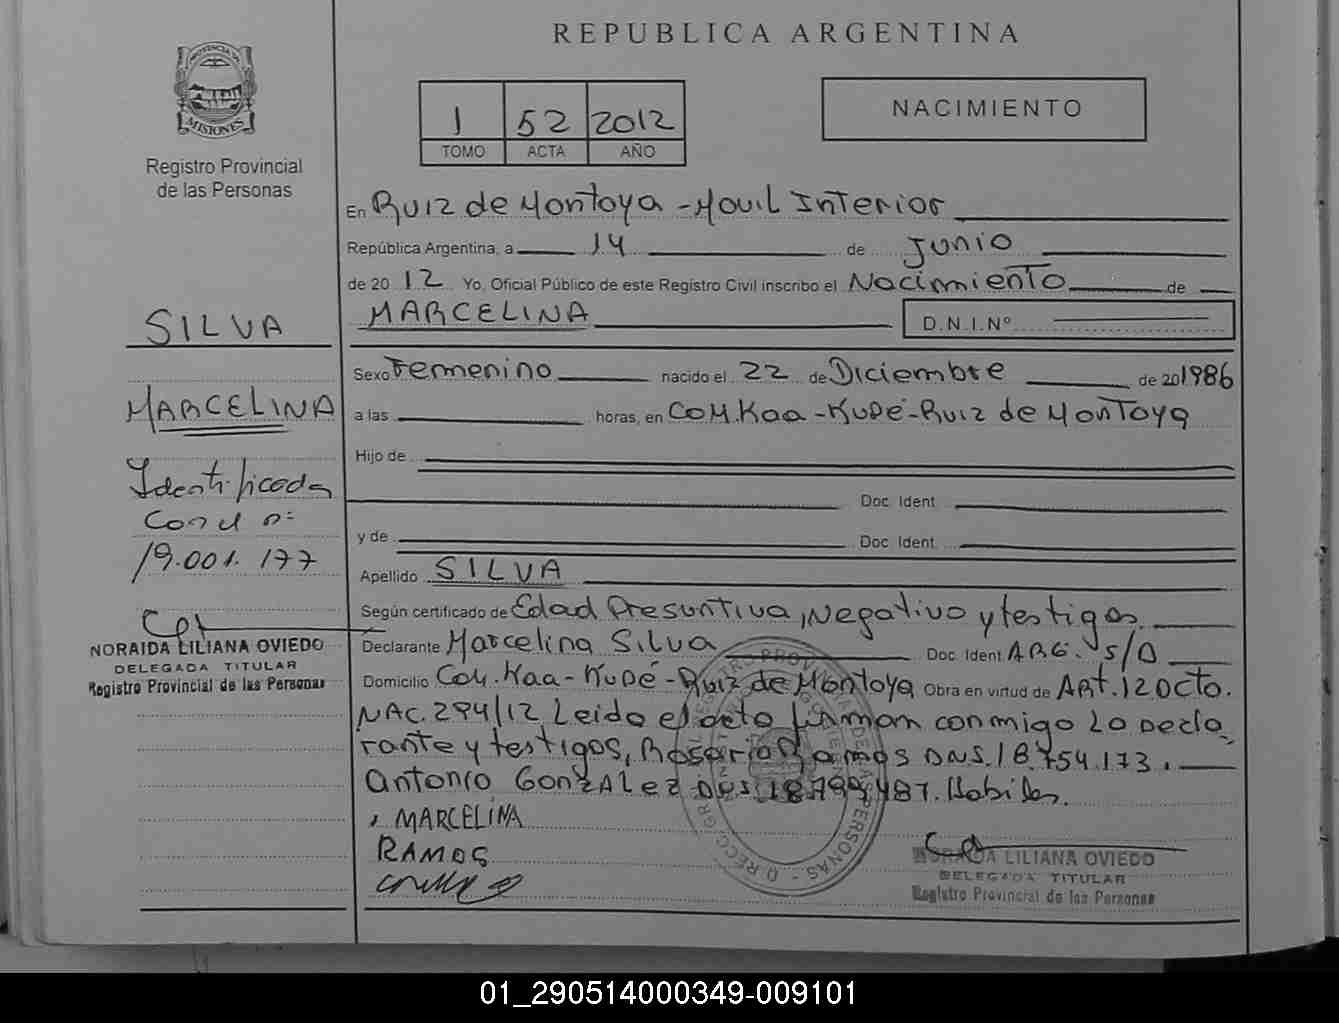 REPUBLICA ARGENTINA
PROVINCIA DE
MISIONES
Registro Provincial
de las Personas
1 52 2012
TOMO ACTA AÑO
NACIMIENTO
En Ruiz de Montoya - Movil Interior
República Argentina, a 14 de Junio
de 2012 Yo, Oficial Público de este Registro Civil inscribo el Nacimiento de
MARCELINA D.N.I.Nº
Sexo Femenino nacido el 22 de Diciembre de 201986
a las horas, en COM. Kaa-Kupé-Ruiz de Montoya
Hijo de
Doc. Ident.
y de Doc. Ident.
Apellido SILVA
Según certificado de Edad Presuntiva, Negativo y testigos
Declarante Marcelina Silva Doc. Ident. ARG. S/D
Domicilio Com. Kaa-Kupé-Ruiz de Montoya Obra en virtud de Art. 12 Dcto.
NAC. 294/12 Leido el acto firman conmigo La Decla
rante y testigos, Rosario Ramos DNI. 18.754.173.
Antonio GonzALez DNI 18.799.487. Habiles.
MARCELINA
RAMOS
NORAIDA LILIANA OVIEDO
DELEGADA TITULAR
Registro Provincial de las Personas
SILVA
MARCELINA
Identificada
Con el nº
19.001.177
NORAIDA LILIANA OVIEDO
DELEGADA TITULAR
Registro Provincial de las Personas
01_290514000349-009101